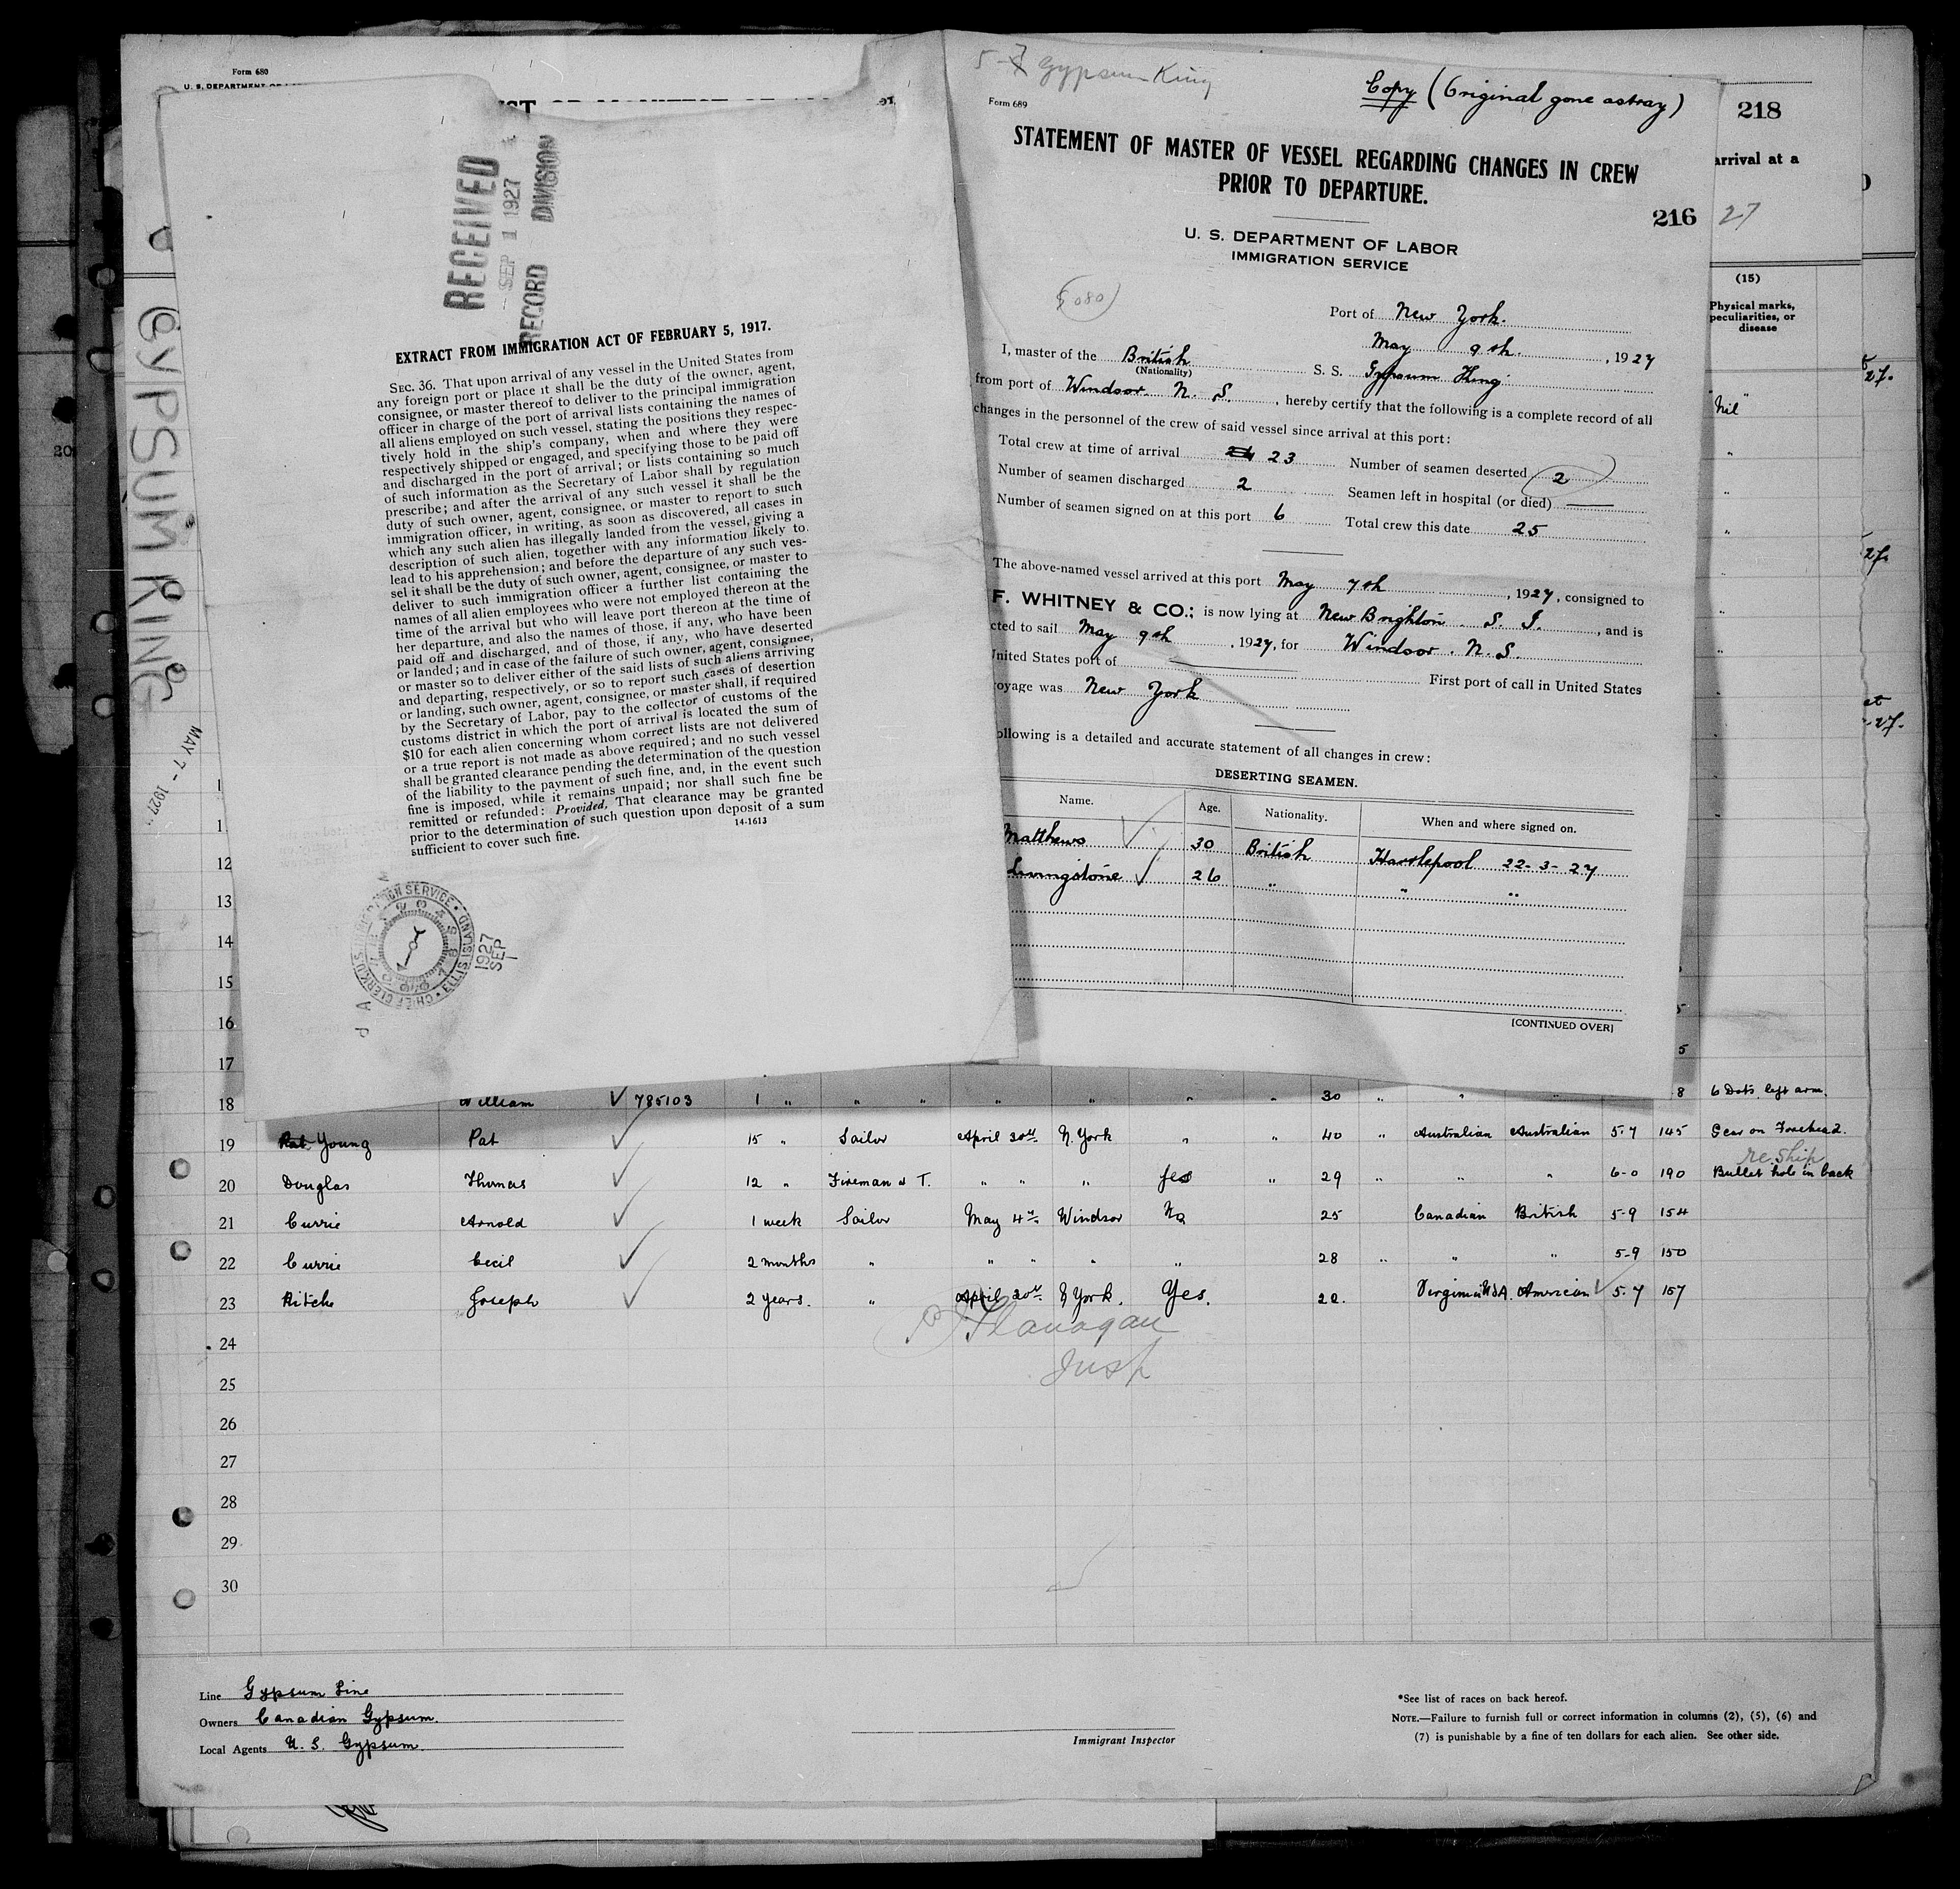 Form 680
U. S. DEPARTMENT OF
GYPSUM KING
MAY 7 - 1927
RECEIVED
SEP 1 1927
RECORD DIVISION
EXTRACT FROM IMMIGRATION ACT OF FEBRUARY 5, 1917.
SEC. 36. That upon arrival of any vessel in the United States from
any foreign port or place it shall be the duty of the owner, agent,
consignee, or master thereof to deliver to the principal immigration
officer in charge of the port of arrival lists containing the names of
all aliens employed on such vessel, stating the positions they respec-
tively hold in the ship's company, when and where they were
respectively shipped or engaged, and specifying those to be paid off
and discharged in the port of arrival; or lists containing so much
of such information as the Secretary of Labor shall by regulation
prescribe; and after the arrival of any such vessel it shall be the
duty of such owner, agent, consignee, or master to report to such
immigration officer, in writing, as soon as discovered, all cases in
which any such alien has illegally landed from the vessel, giving a
description of such alien, together with any information likely to
lead to his apprehension; and before the departure of any such ves-
sel it shall be the duty of such owner, agent, consignee, or master to
deliver to such immigration officer a further list containing the
names of all alien employees who were not employed thereon at the
time of the arrival but who will leave port thereon at the time of
her departure, and also the names of those, if any, who have been
paid off and discharged, and of those, if any, who have deserted
or landed; and in case of the failure of such owner, agent, consignee,
or master so to deliver either of the said lists of such aliens arriving
and departing, respectively, or so to report such cases of desertion
or landing, such owner, agent, consignee, or master shall, if required
by the Secretary of Labor, pay to the collector of customs of the
customs district in which the port of arrival is located the sum of
$10 for each alien concerning whom correct lists are not delivered
or a true report is not made as above required; and no such vessel
shall be granted clearance pending the determination of the question
of the liability to the payment of such fine, and, in the event such
fine is imposed, while it remains unpaid; nor shall such fine be
remitted or refunded: Provided, That clearance may be granted
prior to the determination of such question upon deposit of a sum
sufficient to cover such fine.
14-1613
IMMIGRATION SERVICE • ELLIS ISLAND • CHIEF CLERK'S
1927 SEP 1
5-7 Gypsum King
Copy (Original gone astray)
Form 689
STATEMENT OF MASTER OF VESSEL REGARDING CHANGES IN CREW
PRIOR TO DEPARTURE.
216
U. S. DEPARTMENT OF LABOR
IMMIGRATION SERVICE
Port of New York.
May 9th. , 1927
I, master of the British S. S. Gypsum King
(Nationality)
from port of Windsor N. S. , hereby certify that the following is a complete record of all
changes in the personnel of the crew of said vessel since arrival at this port:
Total crew at time of arrival 23 Number of seamen deserted 2
Number of seamen discharged 2 Seamen left in hospital (or died) —
Number of seamen signed on at this port 6 Total crew this date 25
The above-named vessel arrived at this port May 7th , 1927, consigned to
F. WHITNEY & CO.; is now lying at New Brighton. S. I. , and is
cted to sail May 9th , 1927, for Windsor. N. S.
United States port of First port of call in United States
oyage was New York
ollowing is a detailed and accurate statement of all changes in crew:
DESERTING SEAMEN.
Name. Age. Nationality. When and where signed on.
Matthews 30 British Hartlepool 22-3-27
Livingstone 26 " " "
[CONTINUED OVER]
218
arrival at a
27
(15)
Physical marks, peculiarities, or disease
Nil
12
13
14
15
16
17
18 William 785103 1 " " " " " " " 30 " " " 8 6 Dots left arm.
19 Young Pat 15 " Sailor April 30th N. York " " 40 " Australian Australian 5-7 145 Scar on Forehead.
re ship
20 Douglas Thomas 12 " Fireman & T. " " " Yes " 29 " " " 6-0 190 Bullet hole in back
21 Currie Arnold 1 week Sailor May 4th Windsor No 25 Canadian British 5-9 154
22 Currie Cecil 2 months " " " " " 28 " " " 5-9 150
23 Ritchie Joseph 2 years. " April 30th N York. Yes. 22. Virginia USA. American 5-7 157
24 Flanagan
25 Insp
26
27
28
29
30
Line Gypsum Line
Owners Canadian Gypsum.
Local Agents U. S. Gypsum.
Immigrant Inspector
*See list of races on back hereof.
NOTE.—Failure to furnish full or correct information in columns (2), (5), (6) and
(7) is punishable by a fine of ten dollars for each alien. See other side.